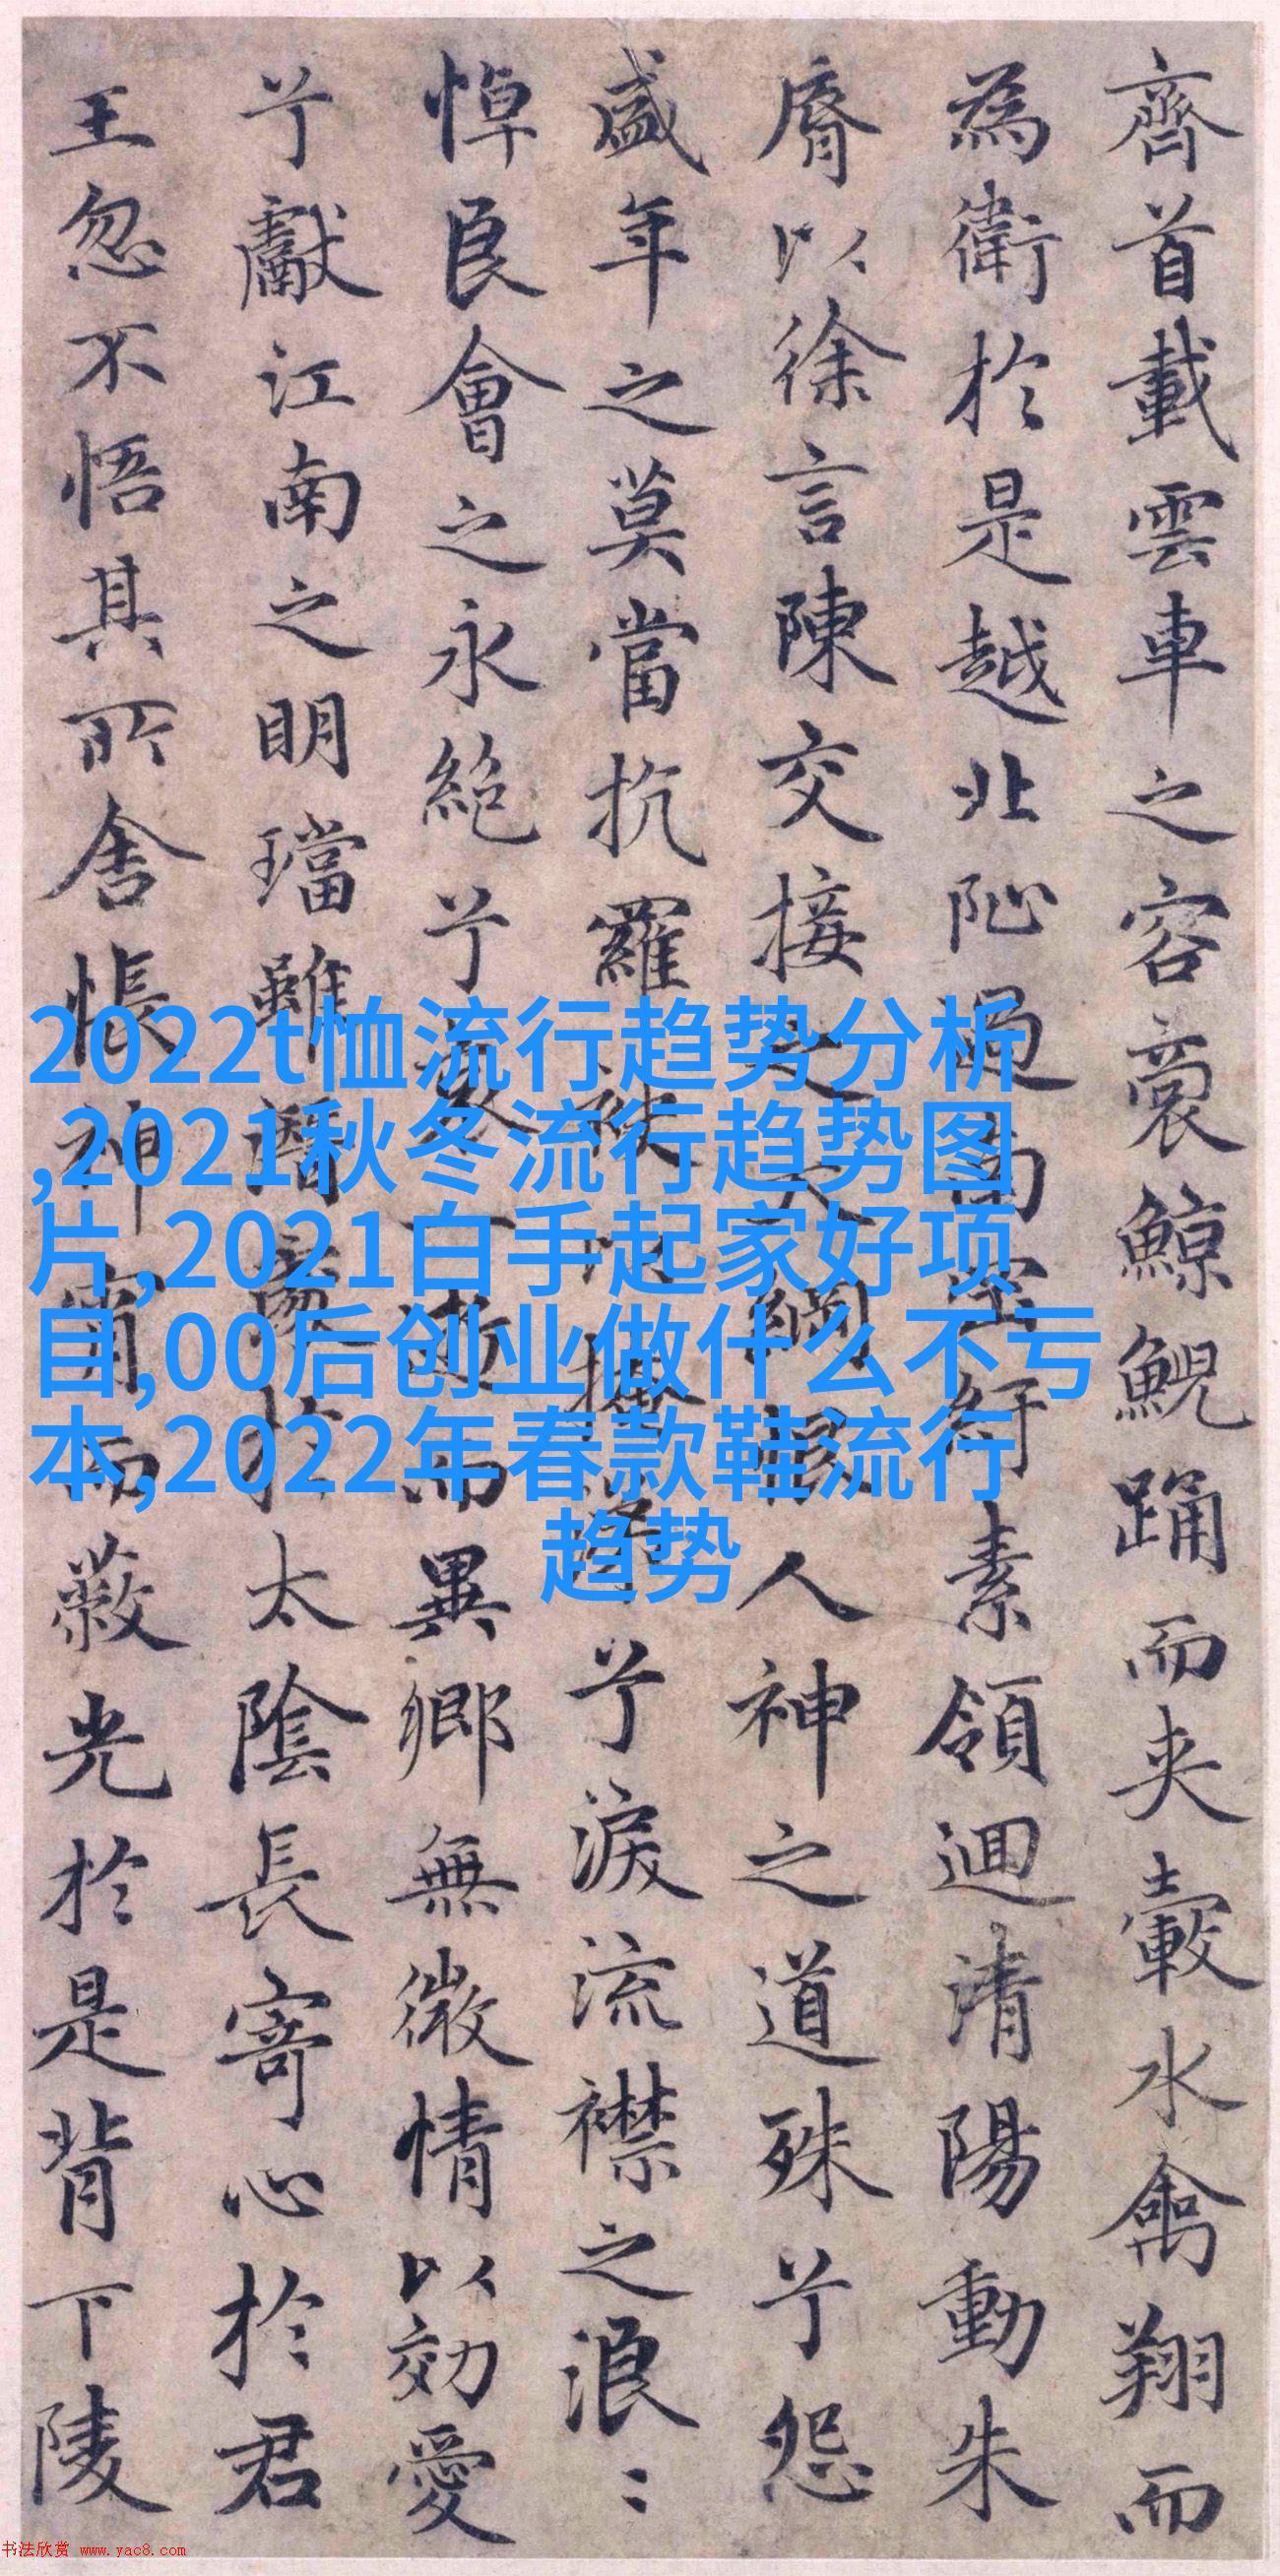 齊首載雲車之容裔鯨鯢踊而夾轂水禽翔而
為衛於是越北沚過南岡紆素領迴清陽動朱
脣以徐言陳交接之大綱恨人神之道殊兮怨
盛年之莫當抗羅袂以掩涕兮淚流襟之浪〻
悼良會之永絕兮哀一逝而異鄉無微情以効愛
兮獻江南之明璫雖潛處於太陰長寄心於君
王忽不悟其所舍悵神宵而蔽光於是背下陵
2022t恤流行趋势分析
,2021秋冬流行趋势图
片,2021白手起家好项
目,00后创业做什么不亏
本,2022年春款鞋流行
趋势
书法欣赏 www.yac8.com